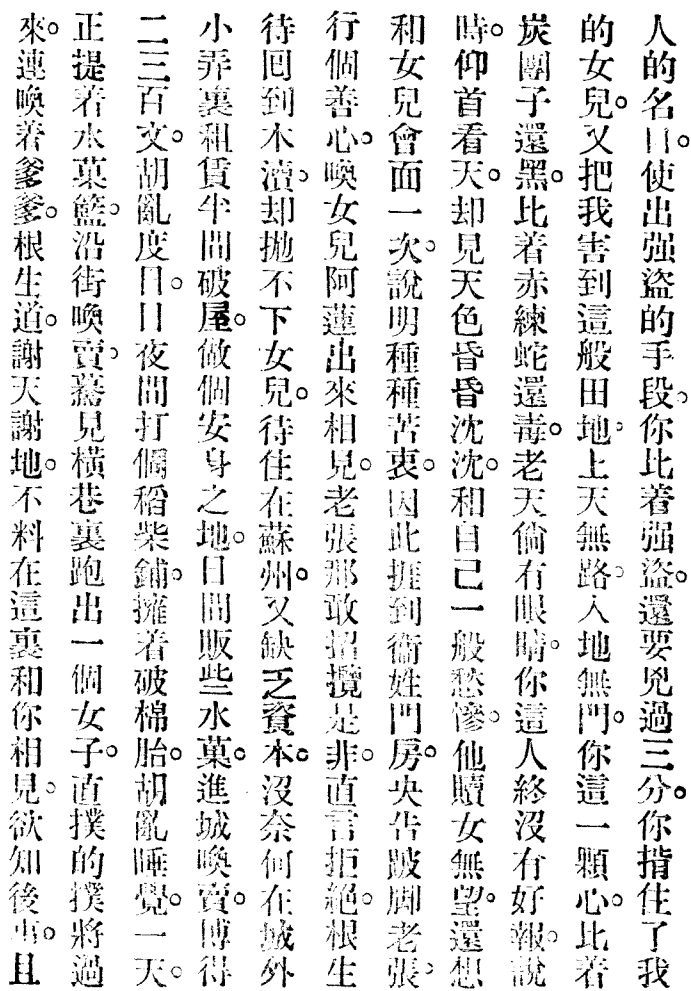 人的名目。使出强盜的手段。你比着强盜。還要兇過三分。你揹住了我
的女兒。又把我害到這般田地。上天無路。入地無門。你這一顆心。比着
炭團子還黑。比着赤練蛇還毒。老天倘有眼睛。你這人終沒有好報。說
時。仰首看天。却見天色昏昏沈沈。和自己一般愁慘。他贖女無望。還想
和女兒會面一次。說明種種苦衷。因此捱到衞姓門房。央告跛脚老張。
行個善心。喚女兒阿蓮出來相見。老張那敢招攬是非。直言拒絕。根生
待囘到木瀆。却拋不下女兒。待住在蘇州。又缺乏資本。沒奈何在城外
小弄裏租賃半間破屋。做個安身之地。日間販些水菓。進城喚賣。博得
二三百文。胡亂度日。日夜間打個稻柴鋪。擁着破棉胎。胡亂睡覺。一天。
正提着水菓籃。沿街喚賣。驀見橫巷裏跑出一個女子。直撲的撲將過
來。連喚着爹爹。根生道。謝天謝地。不料在這裏和你相見。欲知後事。且